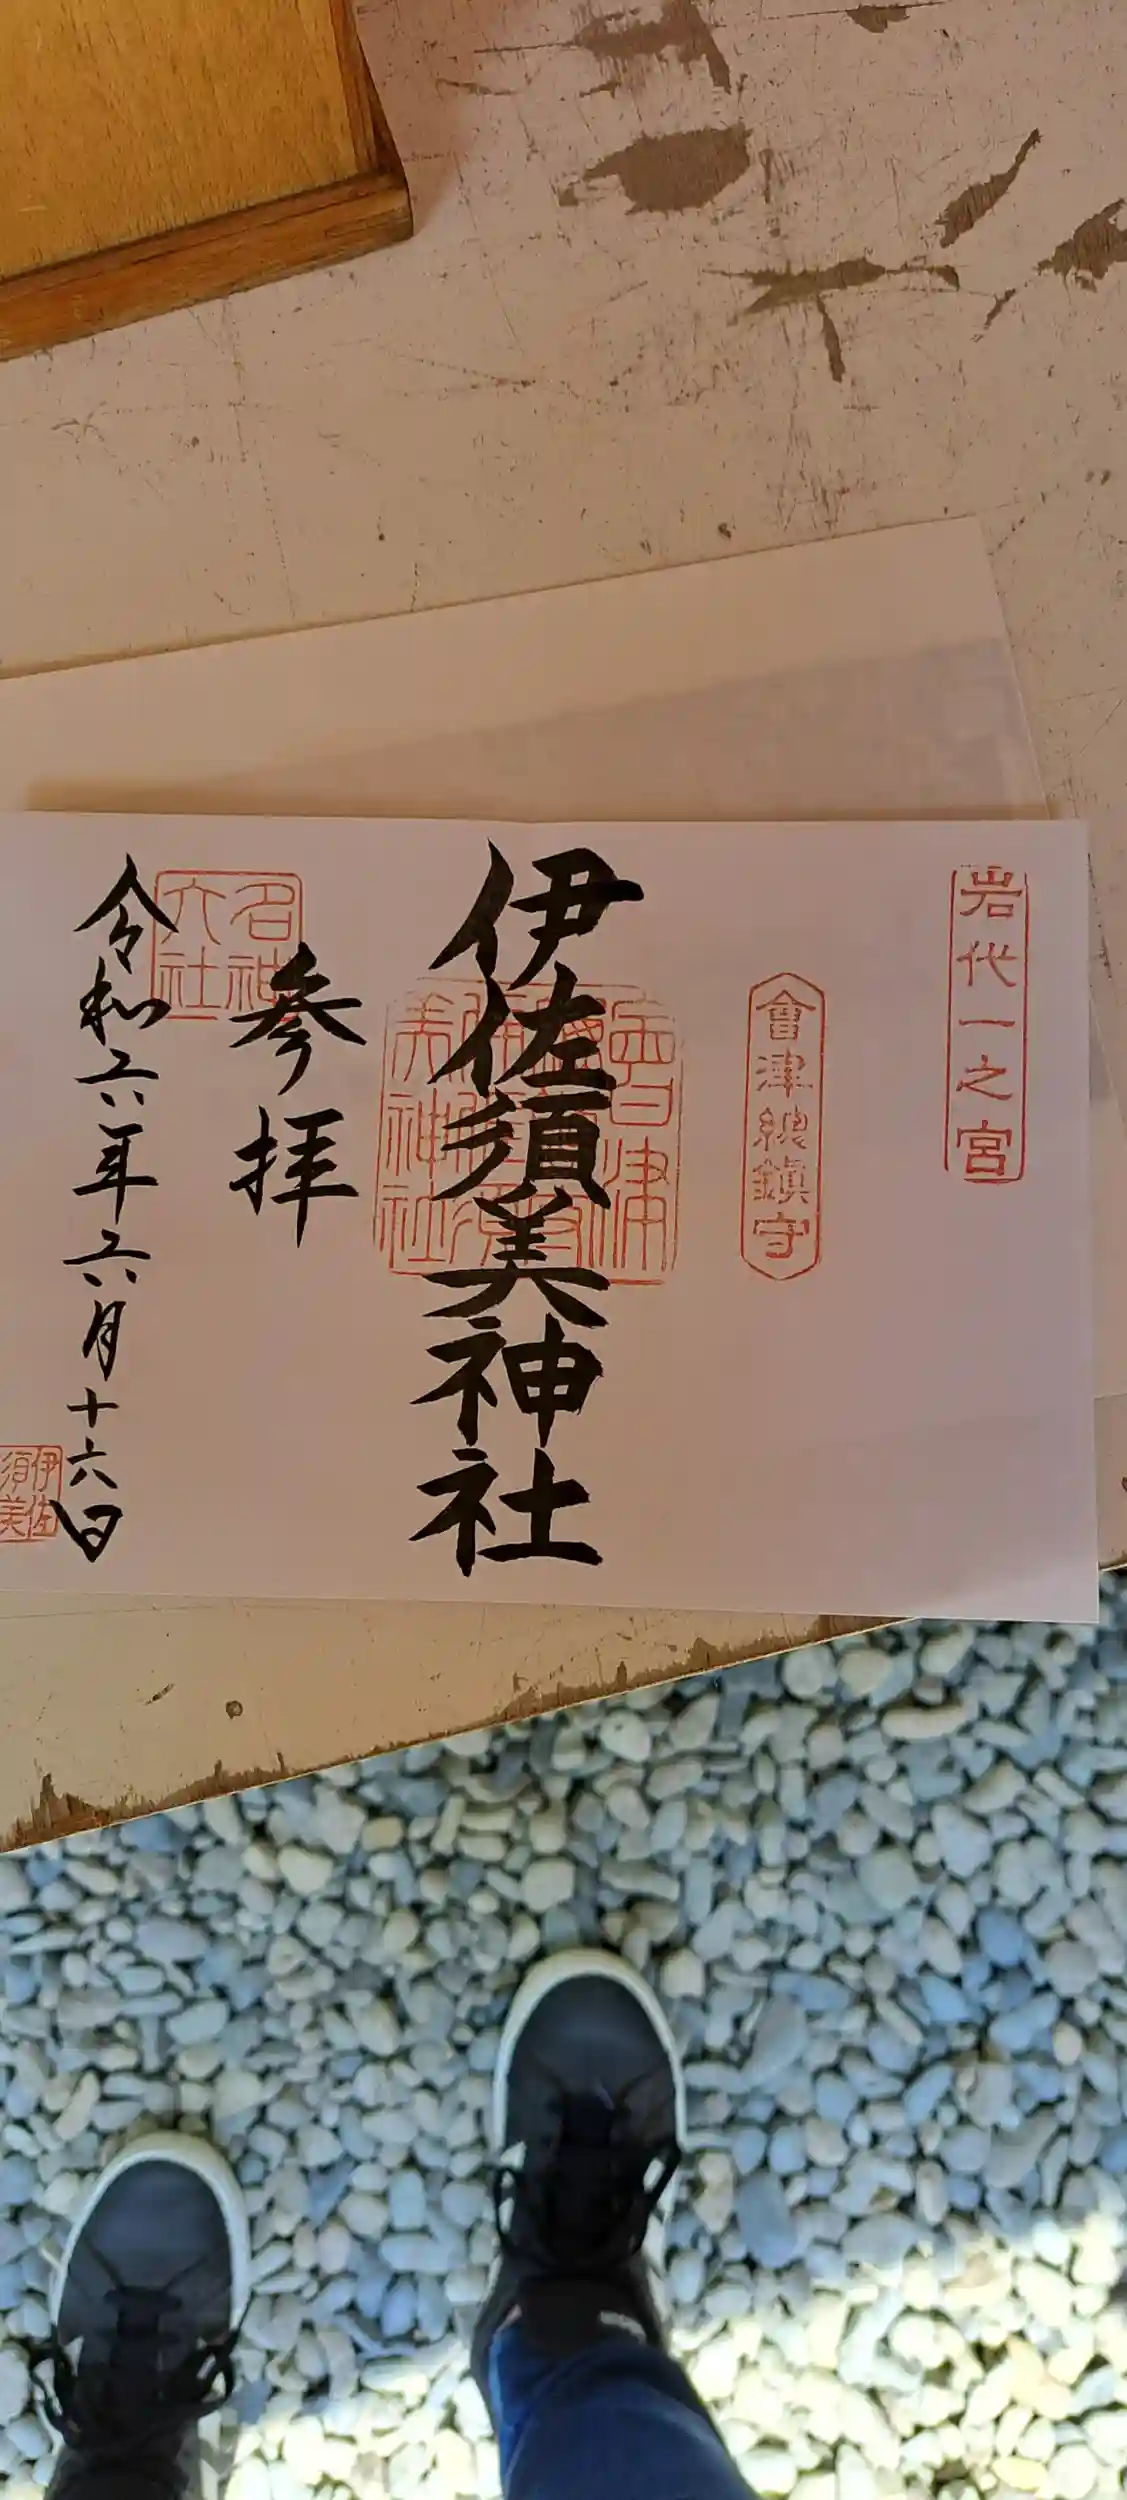 岩代一之宮
會津総鎮守
伊佐須美神社
參拝
名神大社
令和六年六月十六日
伊佐須美